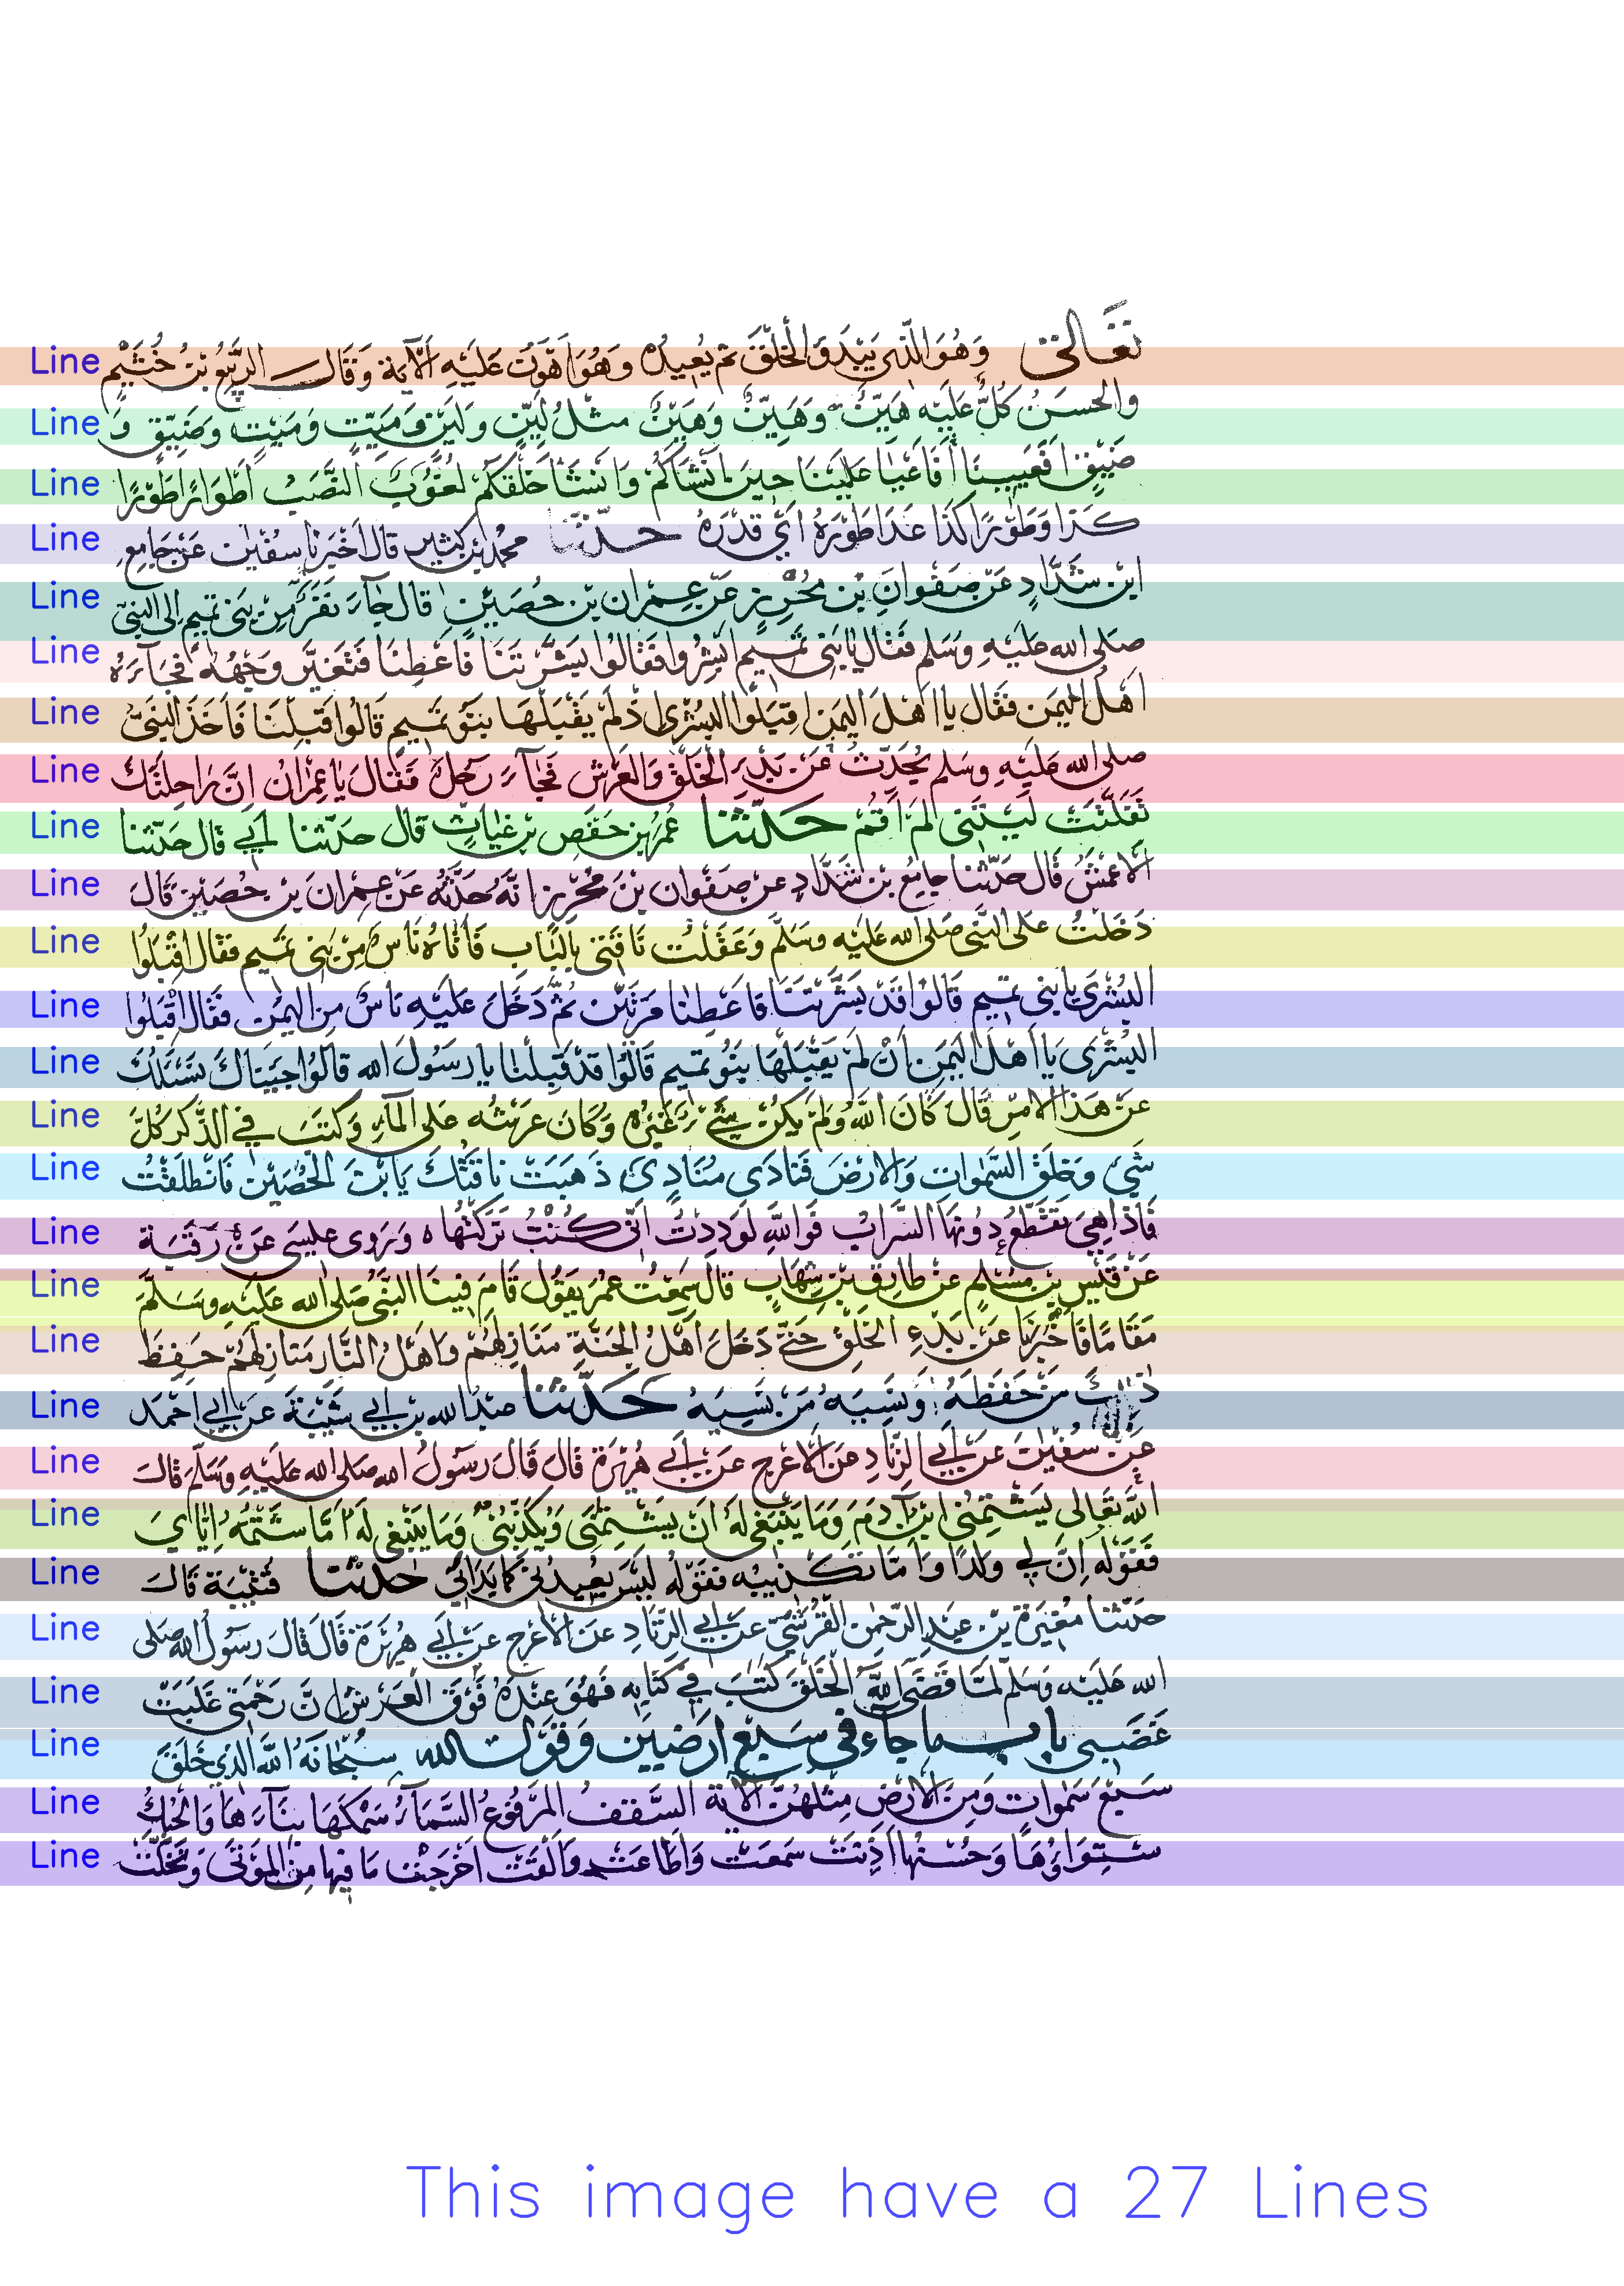 Line تعالى وَهُوَ الَّذِي يَبْدَؤُ الْخَلْقَ ثم يُعِيدُه وَهُوَ اَهْوَنُ عَلَيْهِ الآية وَقَالَ الرَّبِيعُ بْنُ خُثَيْم
Line والحسَنُ كُلٌّ عَلَيْه هَيِّنٌ وَهَيْنٌ وَهَيِّنٌ مثْلُ لَيْنٍ وَلَيِّنٍ وَمَيْتٍ وَمَيِّتٍ وَضَيْقٍ وَ
Line ضَيِّقٍ اَفَعَيِينَا اَفَاَعْيَا عَلَيْنَا حِينَ اَنْشَاَكُمْ وَاَنْشَأَ خَلْقَكُمْ لُغُوبٌ النَّصَبُ اَطْوَارًا طَوْرًا
Line كَذَا وَطَوْرًا كَذَا عَدَا طَوْرَهُ اَيْ قَدْرَهُ حدّثنا محمد بن كثير قال اَخْبَرَنا سفيان عَنْ جَامِعِ
Line ابن شَدَّادٍ عَنْ صَفْوانَ بْنِ مُحْرِزٍ عَنْ عِمْرَان بْنِ حُصَيْنٍ قال جَاءَ نَفَرٌ مِنْ بَنِي تميم اِلى النبىّ
Line صَلى الله عَلَيْهِ وَسَلم فَقَال يَا بَنِى تَمِيم اَبْشِرُوا فَقَالُوا بَشَّرْتَنَا فَاَعْطِنَا فَتَغَيَّرَ وَجْهُهُ فجَاءَهُ
Line اَهْلُ اليَمَن فَقَال يا اَهْلَ اليَمَن اقْبَلُوا البُشْرَى اِذْ لَمْ يَقْبَلْهَا بَنُو تَمِيمٍ قَالُوا قَبِلْنَا فَاَخَذَ النَّبِىُّ
Line صلى الله عَلَيْهِ وسَلم يُحَدِّثُ عَنْ بَدْءِ الْخَلْقِ وَالعَرْشِ فَجَاءَ رَجُلٌ فَقَالَ يَا عِمْرَانُ اِنَّ رَاحِلَتَكَ
Line تَفَلَّتَتْ لَيْتَنِى لَمْ اَقُمْ حَدّثنا عُمَرُ بْن حَفْصِ بْنِ غِيَاثٍ قال حَدّثنا اَبِي قال حَدّثنا
Line الاعمشُ قال حَدّثنا جامِعُ بن شَدَّادٍ عن صَفْوان بْنِ مُحْرِزٍ اَنَّهُ حَدَّثَهُ عَنْ عِمْرانَ بن حُصَيْنٍ قال
Line دَخَلْتُ عَلى النَّبِى صَلى الله عَلَيْه وسَلَّم وَعَقَلْتُ نَاقَتِى بِالْبَاب فَاَتَاهُ نَاسٌ مِنْ بَنِى تَمِيم فقال اقْبَلُوا
Line البُشْرَى يَا بَنِي تَمِيم قَالُوا قَدْ بَشَّرْتَنَا فَاَعْطِنَا مَرَّتَيْن ثُمَّ دَخَلَ عَلَيْهِ نَاسٌ مِن اليَمَن فقال اقْبَلُوا
Line البُشْرَى يَا اَهْلَ اليَمَنِ اَنْ لَمْ يَقْبَلْهَا بَنُو تميم قَالُوا قد قَبِلْنَا يا رسُولَ الله قَالُوا جِئْنَاكَ نَسْئَلُكَ
Line عَنْ هَذَا الامر قال كَانَ اللهُ وَلَمْ يَكُنْ شَيْءٌ غَيْرُهُ وَكَانَ عَرْشُه عَلى المَاءِ وَكَتَبَ فِي الذِّكْر كُلَّ
Line شَيْ وَخَلَقَ السَّمَواتِ وَالارْضَ فَنَادَى مُنَادٍ ذَهَبَتْ نَاقَتُكَ يَا بْنَ الحُصَيْن فَانْطَلَقْتُ
Line فَاِذَا هِيَ تَقَطَّعُ دُونَهَا السَّرَابُ فَوَاللهِ لَوَدِدْتُ اَنِّى كُنْتُ تَرَكْتُهَا ه وَرَوَى عِيسَى عَنْ رَقَبَة
Line عَنْ قَيْسِ بْنِ مُسْلِمٍ عَنْ طَارِقِ بْنِ شِهَابٍ قَالَ سَمِعْتُ عُمَرَ يَقُولُ قَامَ فِينَا النَّبِىُّ صَلى الله عَلَيْهِ وسَلَّمَ
Line مَقَامًا فَاَخْبَرَنَا عَنْ بَدْءِ الخَلْقِ حَتّى دَخَلَ اَهْلُ الجَنَّةِ مَنَازِلَهُمْ وَاَهْلُ النَّارِ مَنَازِلَهُمْ حَفِظَ
Line ذٰلِكَ مَنْ حَفِظَهُ وَنَسِيَهُ مَنْ نَسِيَهُ حَدّثنا عبد الله بن ابي شَيْبَةَ عَنْ ابي اَحْمَد
Line عَنْ سُفْيَانَ عَنْ اَبِي الزِّنَادِ عَنْ الاَعْرَج عَنْ اَبِي هُرَيْرَةَ قَالَ قَالَ رَسُولُ الله صَلى الله عَلَيْهِ وَسَلَّم قال
Line اللهُ تَعَالى يَشْتِمُنِي ابْنُ آدَمَ وَمَا يَنْبَغِي لَهُ اَنْ يَشْتِمَنِى وَيُكَذِّبُنِى وَمَا يَنْبَغِي لَهُ اَمَّا شَتْمُهُ اِيَّايَ
Line فَقَوْلُه اِنَّ لِي وَلَدًا وَاَمَّا تَكْذِيبُه فقَوْلُه لَيْسَ يُعِيدُنِي كَمَا بَدَاَنِي حَدّثنا قُتَيْبَة قال
Line حَدّثنا مُغِيرَة بْن عَبْدِ الرَّحْمٰن القُرَشِيّ عَنْ اَبِي الزِّنَادِ عَن الاَعْرَج عَنْ اَبِي هُرَيْرَة قَالَ قَالَ رسُولُ الله صَلى
Line الله عَلَيْه وَسَلّم لَمَّا قَضَى اللهُ الخَلْقَ كَتَبَ فِي كِتَابِه فَهُوَ عِنْدَهُ فَوْقَ العَرْشِ اِنَّ رَحْمَتِي غَلَبَتْ
Line غَضَبِى باب ما جاء فى سَبْعِ اَرَضِينَ وَقَوْلِ الله سُبْحَانَهُ اللهُ الَّذِي خَلَقَ
Line سَبْعَ سَمٰوَاتٍ وَمِنَ الاَرْضِ مِثْلَهُنَّ الآية السَّقْفُ المَرْفُوعُ السَّمَاءُ سَمْكَهَا بِنَاءَهَا وَالْحُبُكُ
Line سْتِوَاؤُهَا وَحُسْنُهَا اَذِنَتْ سَمِعَتْ وَاَطَاعَتْ وَاَلْقَتْ اَخْرَجَتْ مَا فِيهَا مِنَ المَوْتَى وَتَخَلَّتْ
This image have a 27 Lines